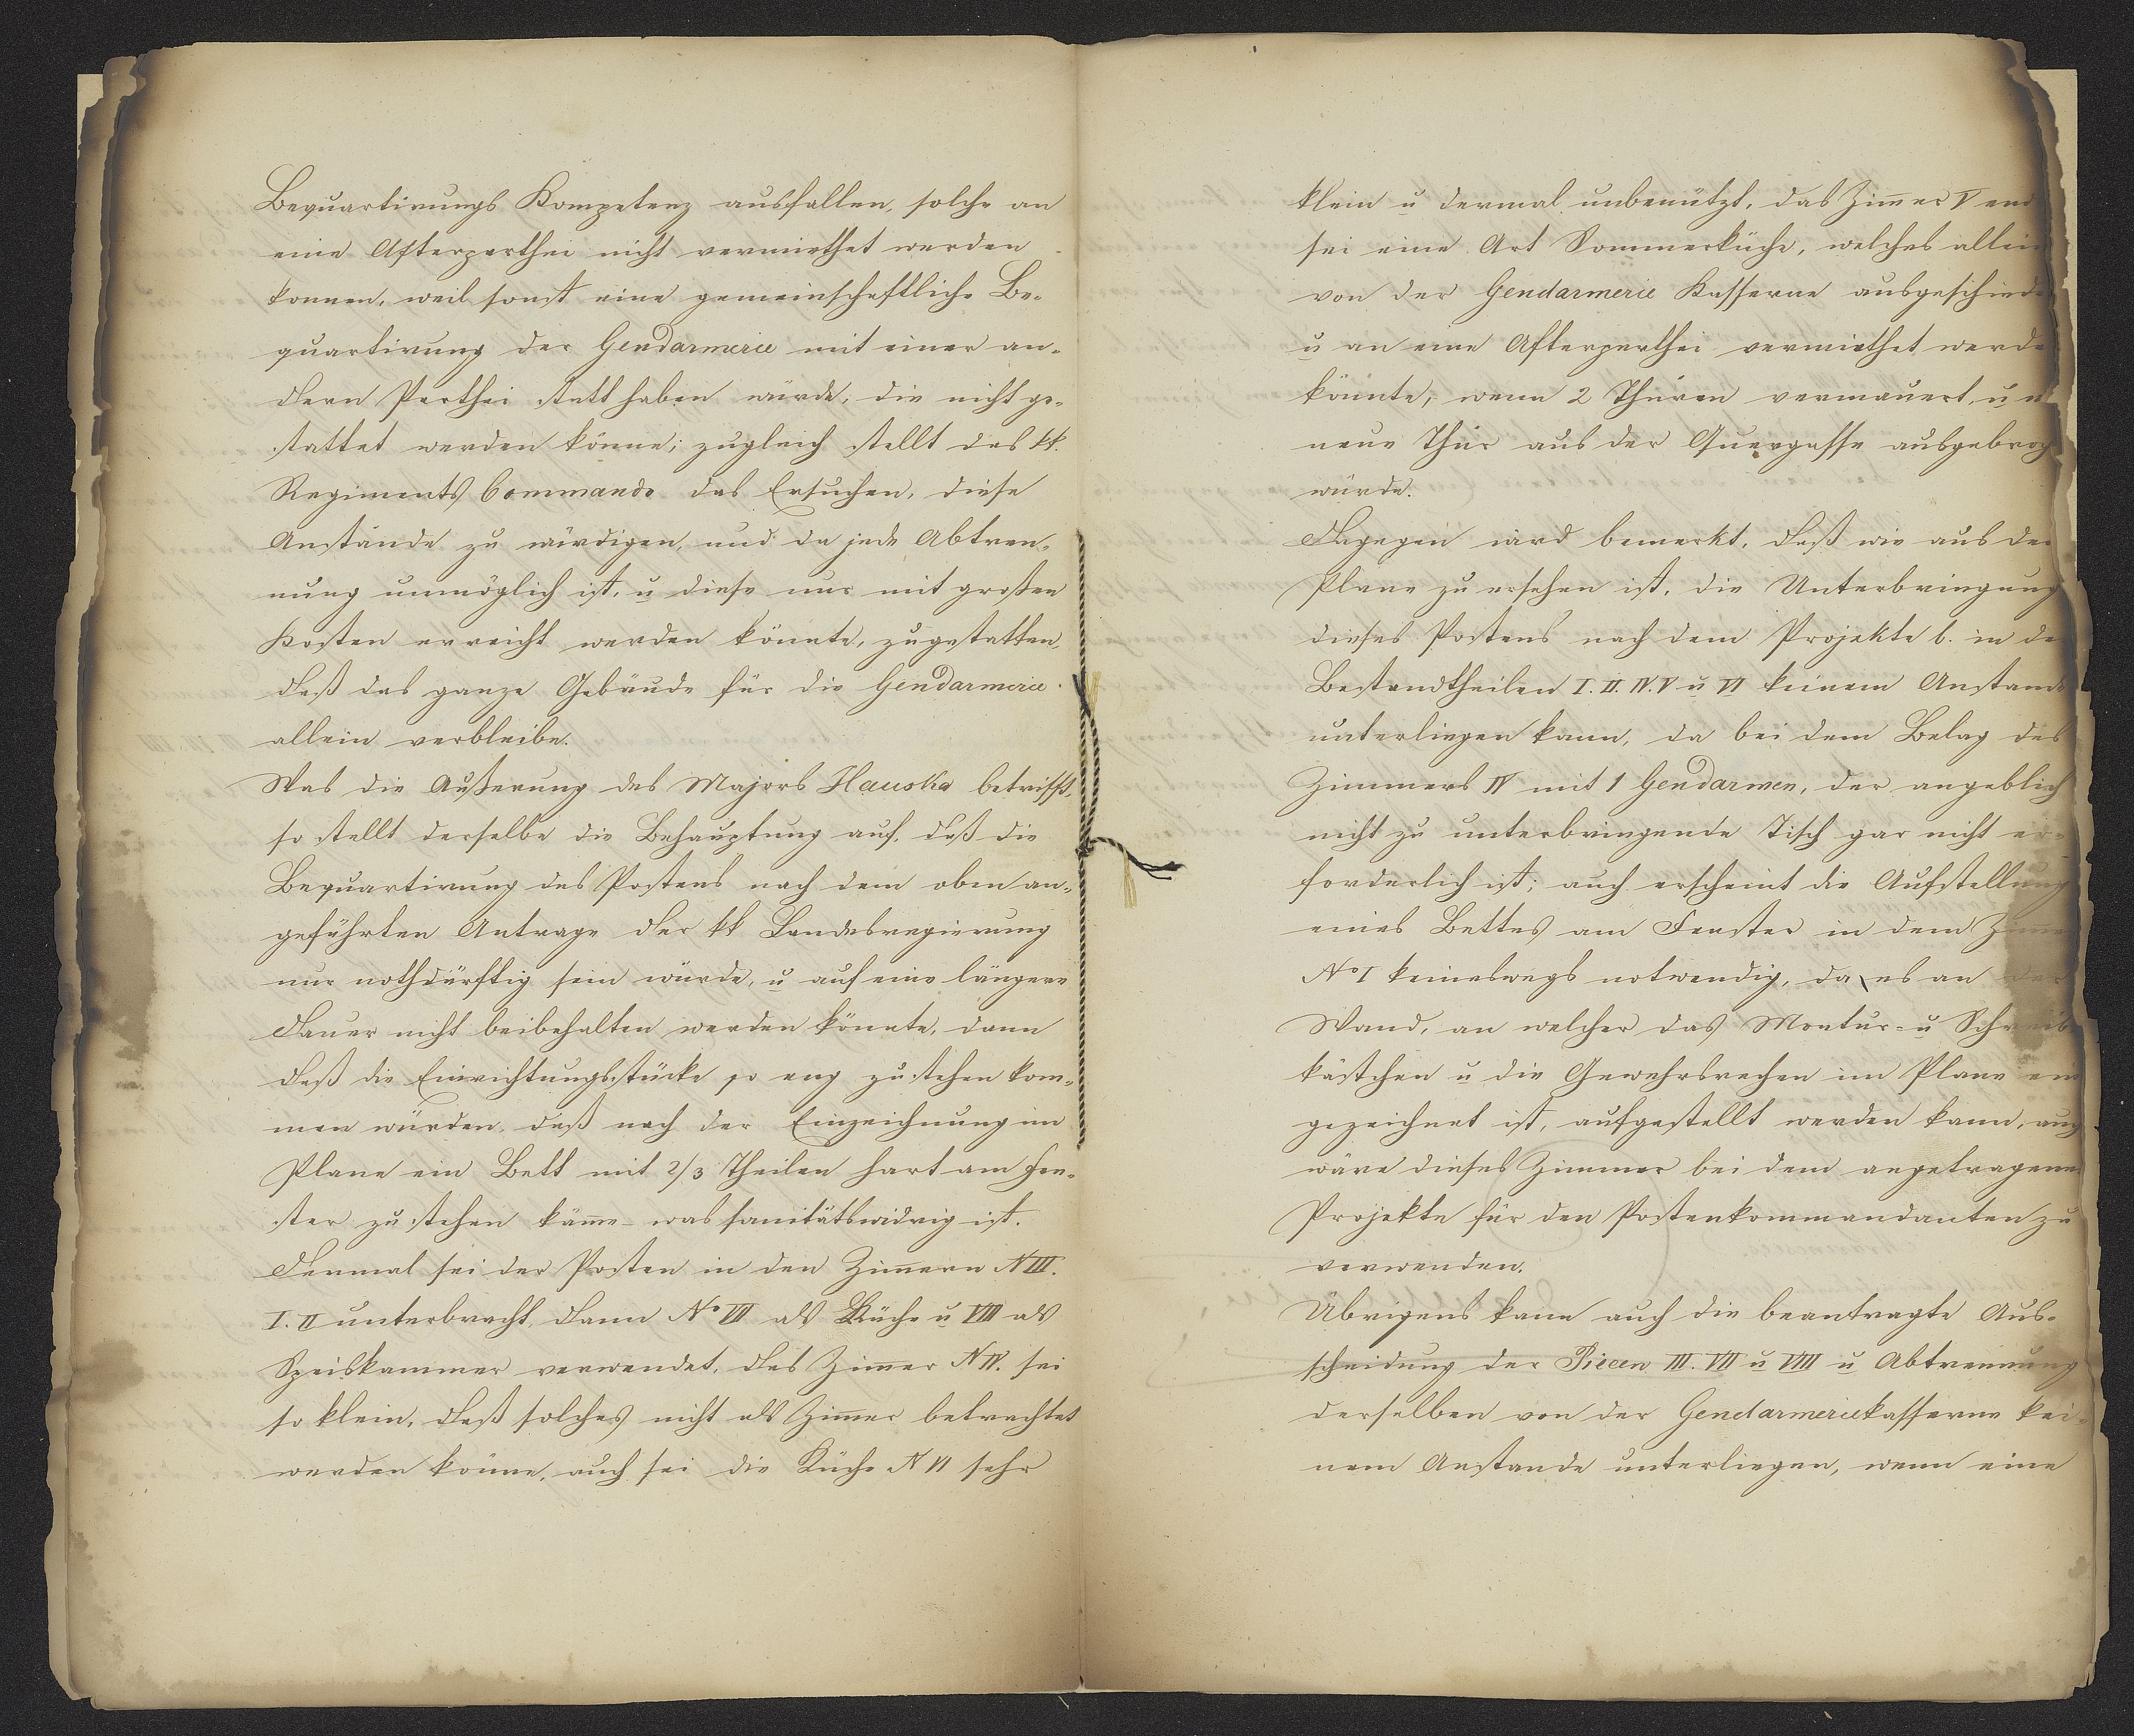 Bequartirungs Kompetenz ausfallen, solche an
eine Afterparthei nicht vermiethet werden
konnen, weil sonst eine gemeinschaftliche Be-
quartirung der Gendarmerie mit einer an-
dern Parthei statt haben würde, die nicht ge-
stattet werden könne; zugleich stellt das kk.
Regiments Commando das Ersuchen, diese
Anstände zu würdigen, und da jede Abtren-
nung unmöglich ist, u diese nur mit großen
Kosten erreicht werden könnte, zugestatten,
daß das ganze Gebäude für die Gendarmerie
allein verbleibe.
Was die Außerung des Majors Hauska betrifft,
so stellt derselbe die Behauptung auf, daß die
Bequartirung des Postens nach dem oben an-
geführten Antrage der kk Landesregierung
nur nothdürftig sein würde, u auf eine längere
Dauer nicht beibehalten werden könnte, dann
daß die Einrichtungsstücke so eng zu stehen kom-
men würden, daß nach der Einzeichnung im
Plane ein Bett mit 2/3 Theilen hart am Fen-
ster zu stehen käme – was sanitätswidrig ist.
Dermal sei der Posten in den Zimmern N III.
I. II unterbracht, dann No VII als Küche u VIII als
Speiskammer verwendet, das Zimmer N IV. sei
so klein, daß solches nicht als Zimmer betrachtet
werden könne, auch sei die Küche N VI sehr
klein u dermal unbenützt, das Zimmer V end
sei eine Art Sommerküche, welches allein
von der Gendarmerie Kasserne ausgeschied
u an eine Afterparthei vermiethet werde
könnte, wenn 2 Thüren vermauert, u
neue Thür aus der Quergasse ausgebroch
würde.
Dagegen wird bemerkt, daß wie aus de
Plane zu ersehen ist, die Unterbringung
dieses Postens nach dem Projekte b. in de
Bestandtheilen I. II. IV. V u VI keinem Anstande
unterliegen kann, da bei dem Belag des
Zimmers IV mit 1 Gendarmen, der angeblich
nicht zu unterbringende Tisch gar nicht er-
forderlich ist; auch erscheint die Aufstellung
eines Bettes am Fenster in dem Zimme
No I keineswegs notwendig, da es an der
Wand, an welcher das Montur- u Schreib
kästchen u die Gewehrrechen im Plane ein
gezeichnet ist, aufgestellt werden kann, auch
wäre dieses Zimmer bei dem angetragenen
Projekte für den Postenkommandanten zu
verwenden.
Übrigens kann auch die beantragte Aus-
scheidung der Piecen III. VII u VIII u Abtrennung
derselben von der Gendarmeriekasserne kei-
nem Anstande unterliegen, wenn eine